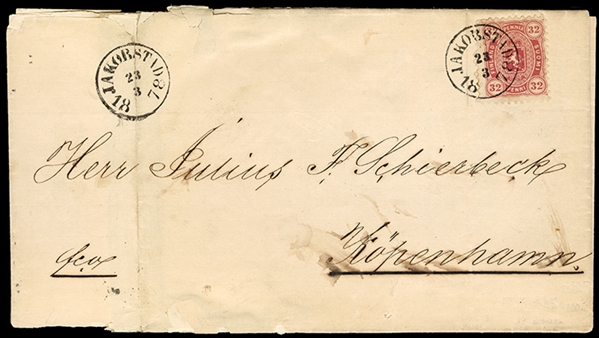 JAKOBSTAD
23
3
18 78
JAKOBSTAD
23
3
18 78
32 32
32 32
SUOMI
Herr Julius F. Schierbeck
Köpenhamn.
fco